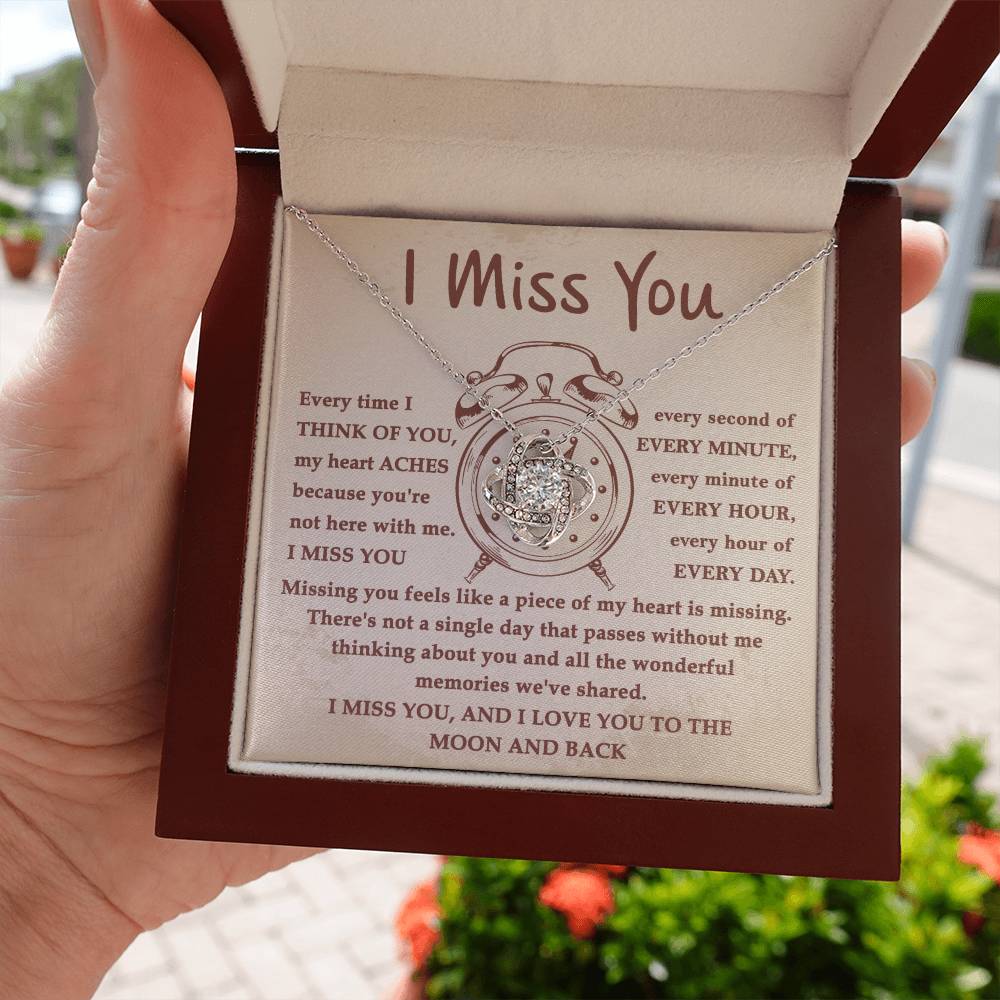 I Miss You
Every time I
THINK OF YOU,
my heart ACHES
because you're
not here with me.
I MISS YOU
every second of
EVERY MINUTE,
every minute of
EVERY HOUR,
every hour of
EVERY DAY.
Missing you feels like a piece of my heart is missing.
There's not a single day that passes without me
thinking about you and all the wonderful
memories we've shared.
I MISS YOU, AND I LOVE YOU TO THE
MOON AND BACK